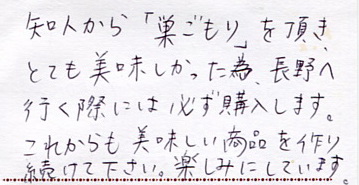 知人から「巣ごもり」を頂き、
とても美味しかった為、長野へ
行く際には必ず購入します。
これからも美味しい商品を作り
続けて下さい。楽しみにしています。